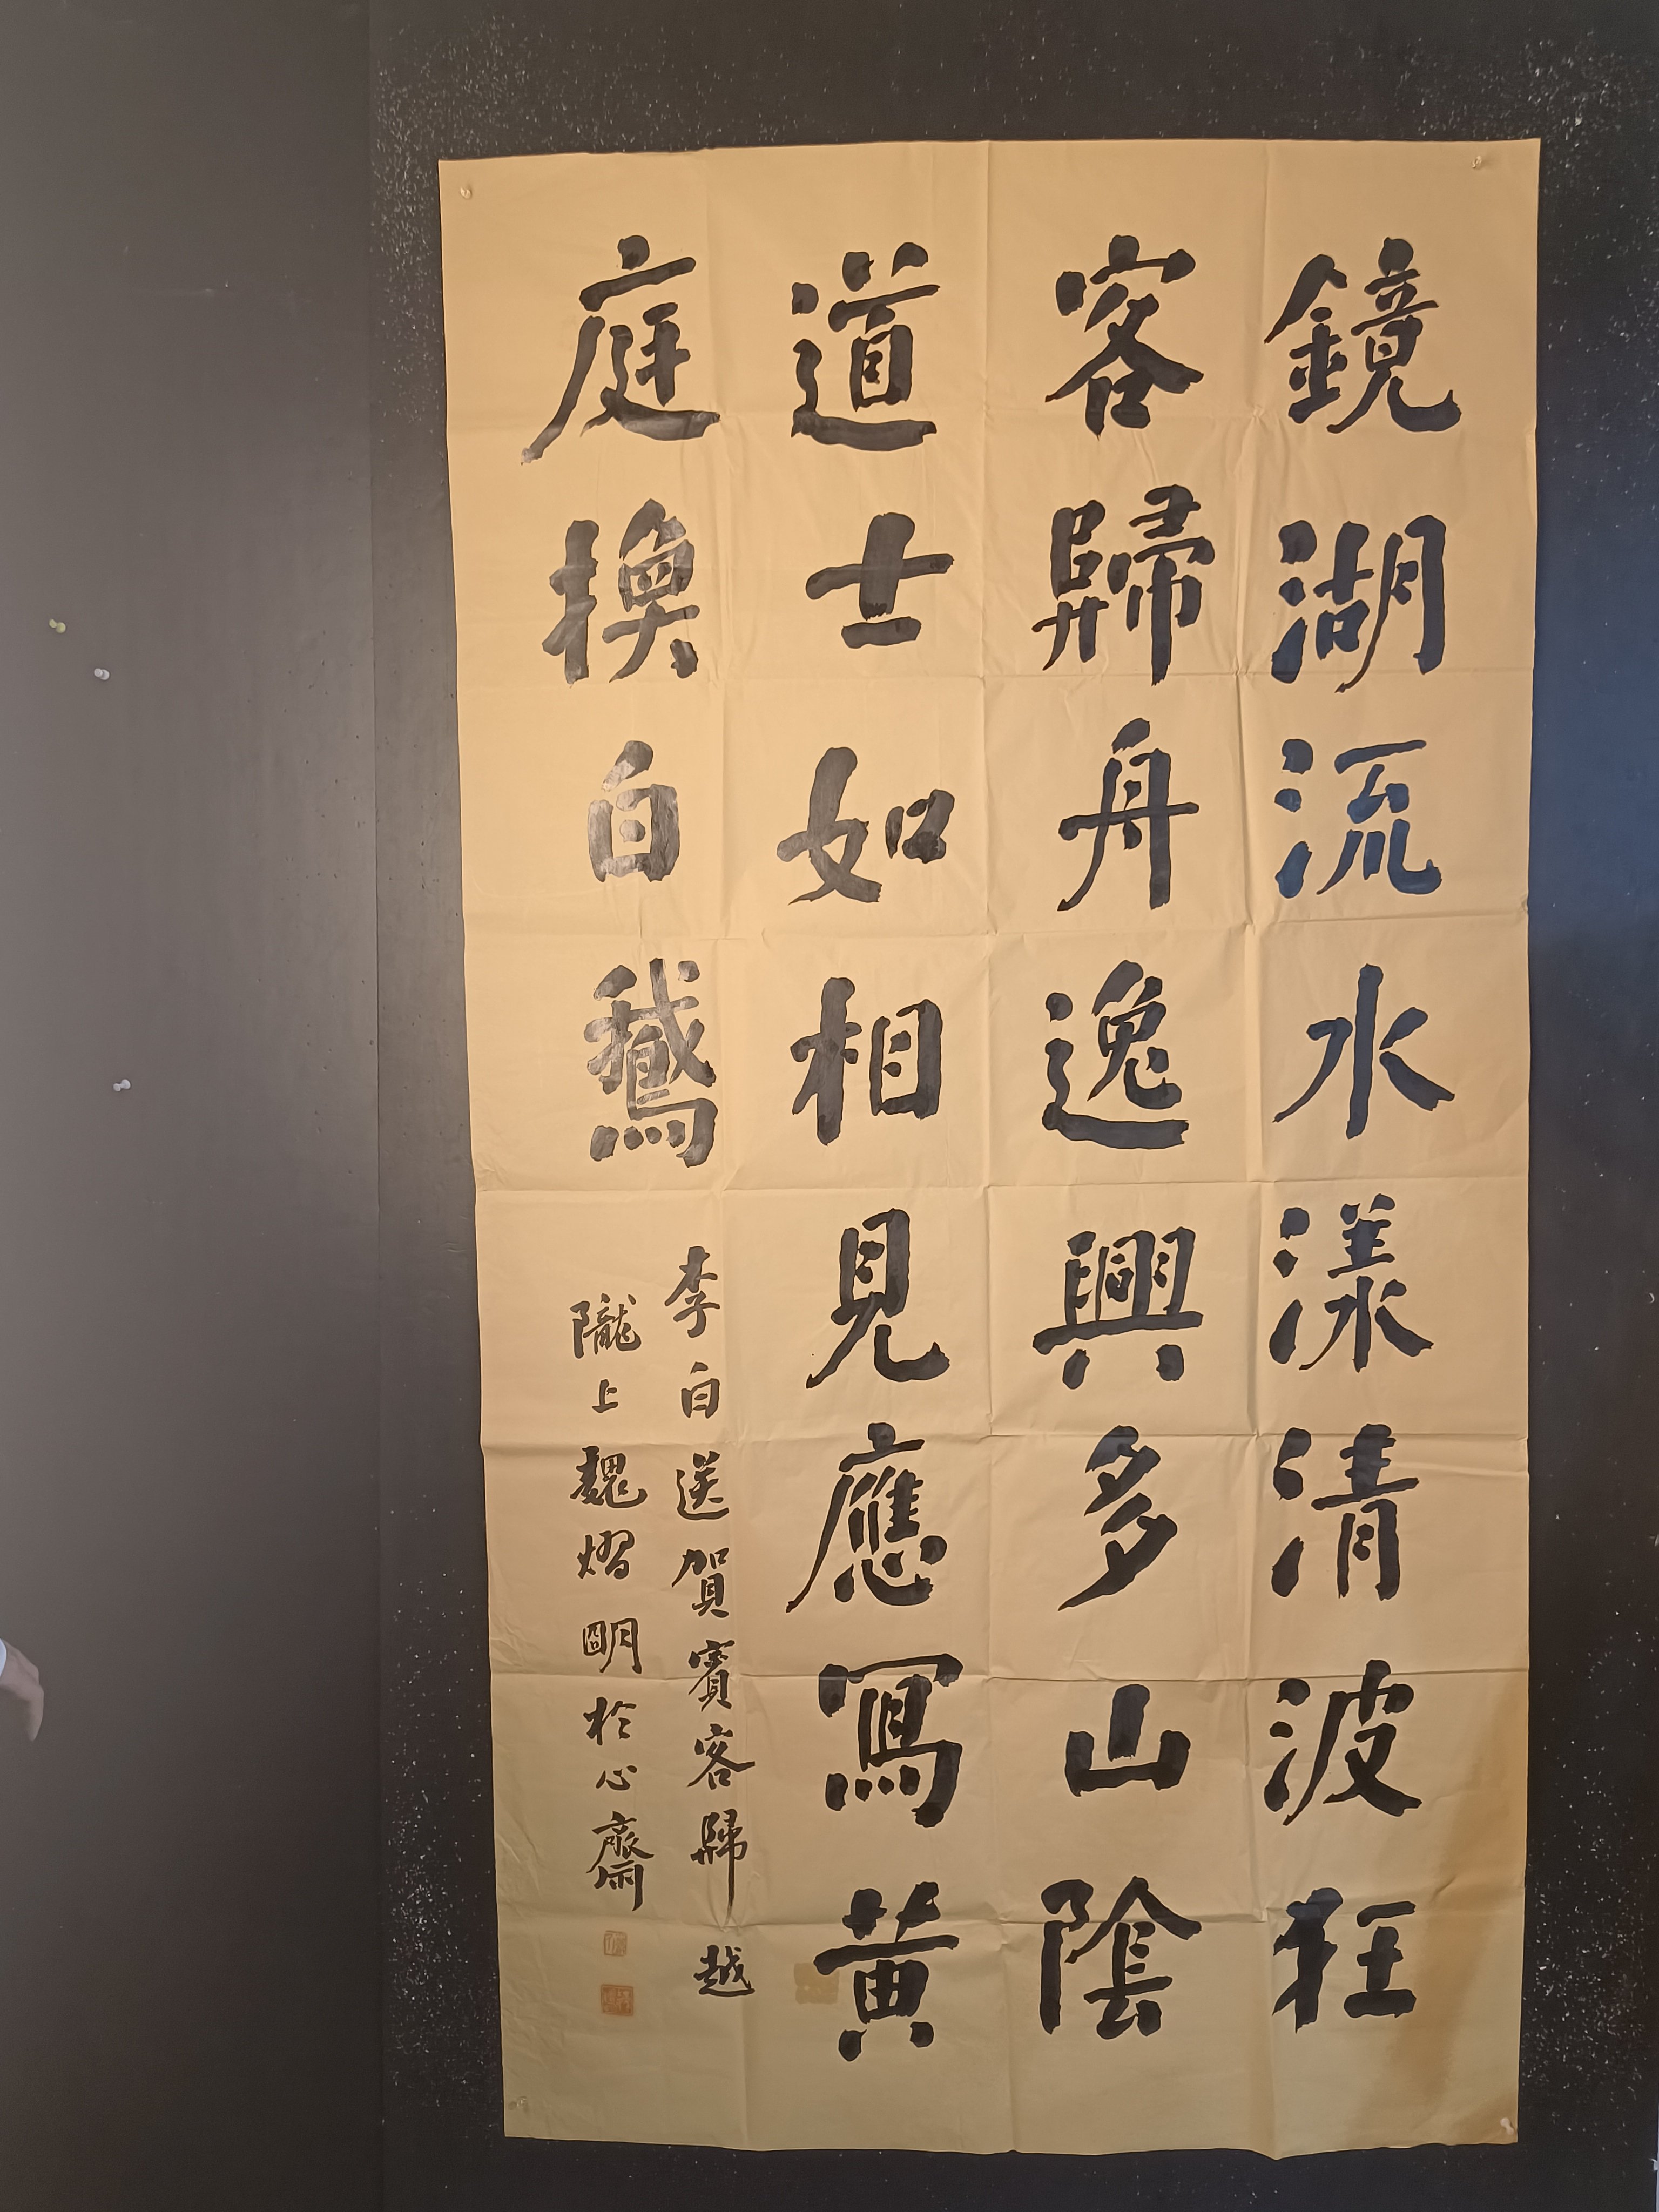 鏡湖流水漾清波狂
客歸舟逸興多山陰
道士如相見應寫黄
庭換白鵞
李白送賀賓客歸越
隴上魏熠明於心齋